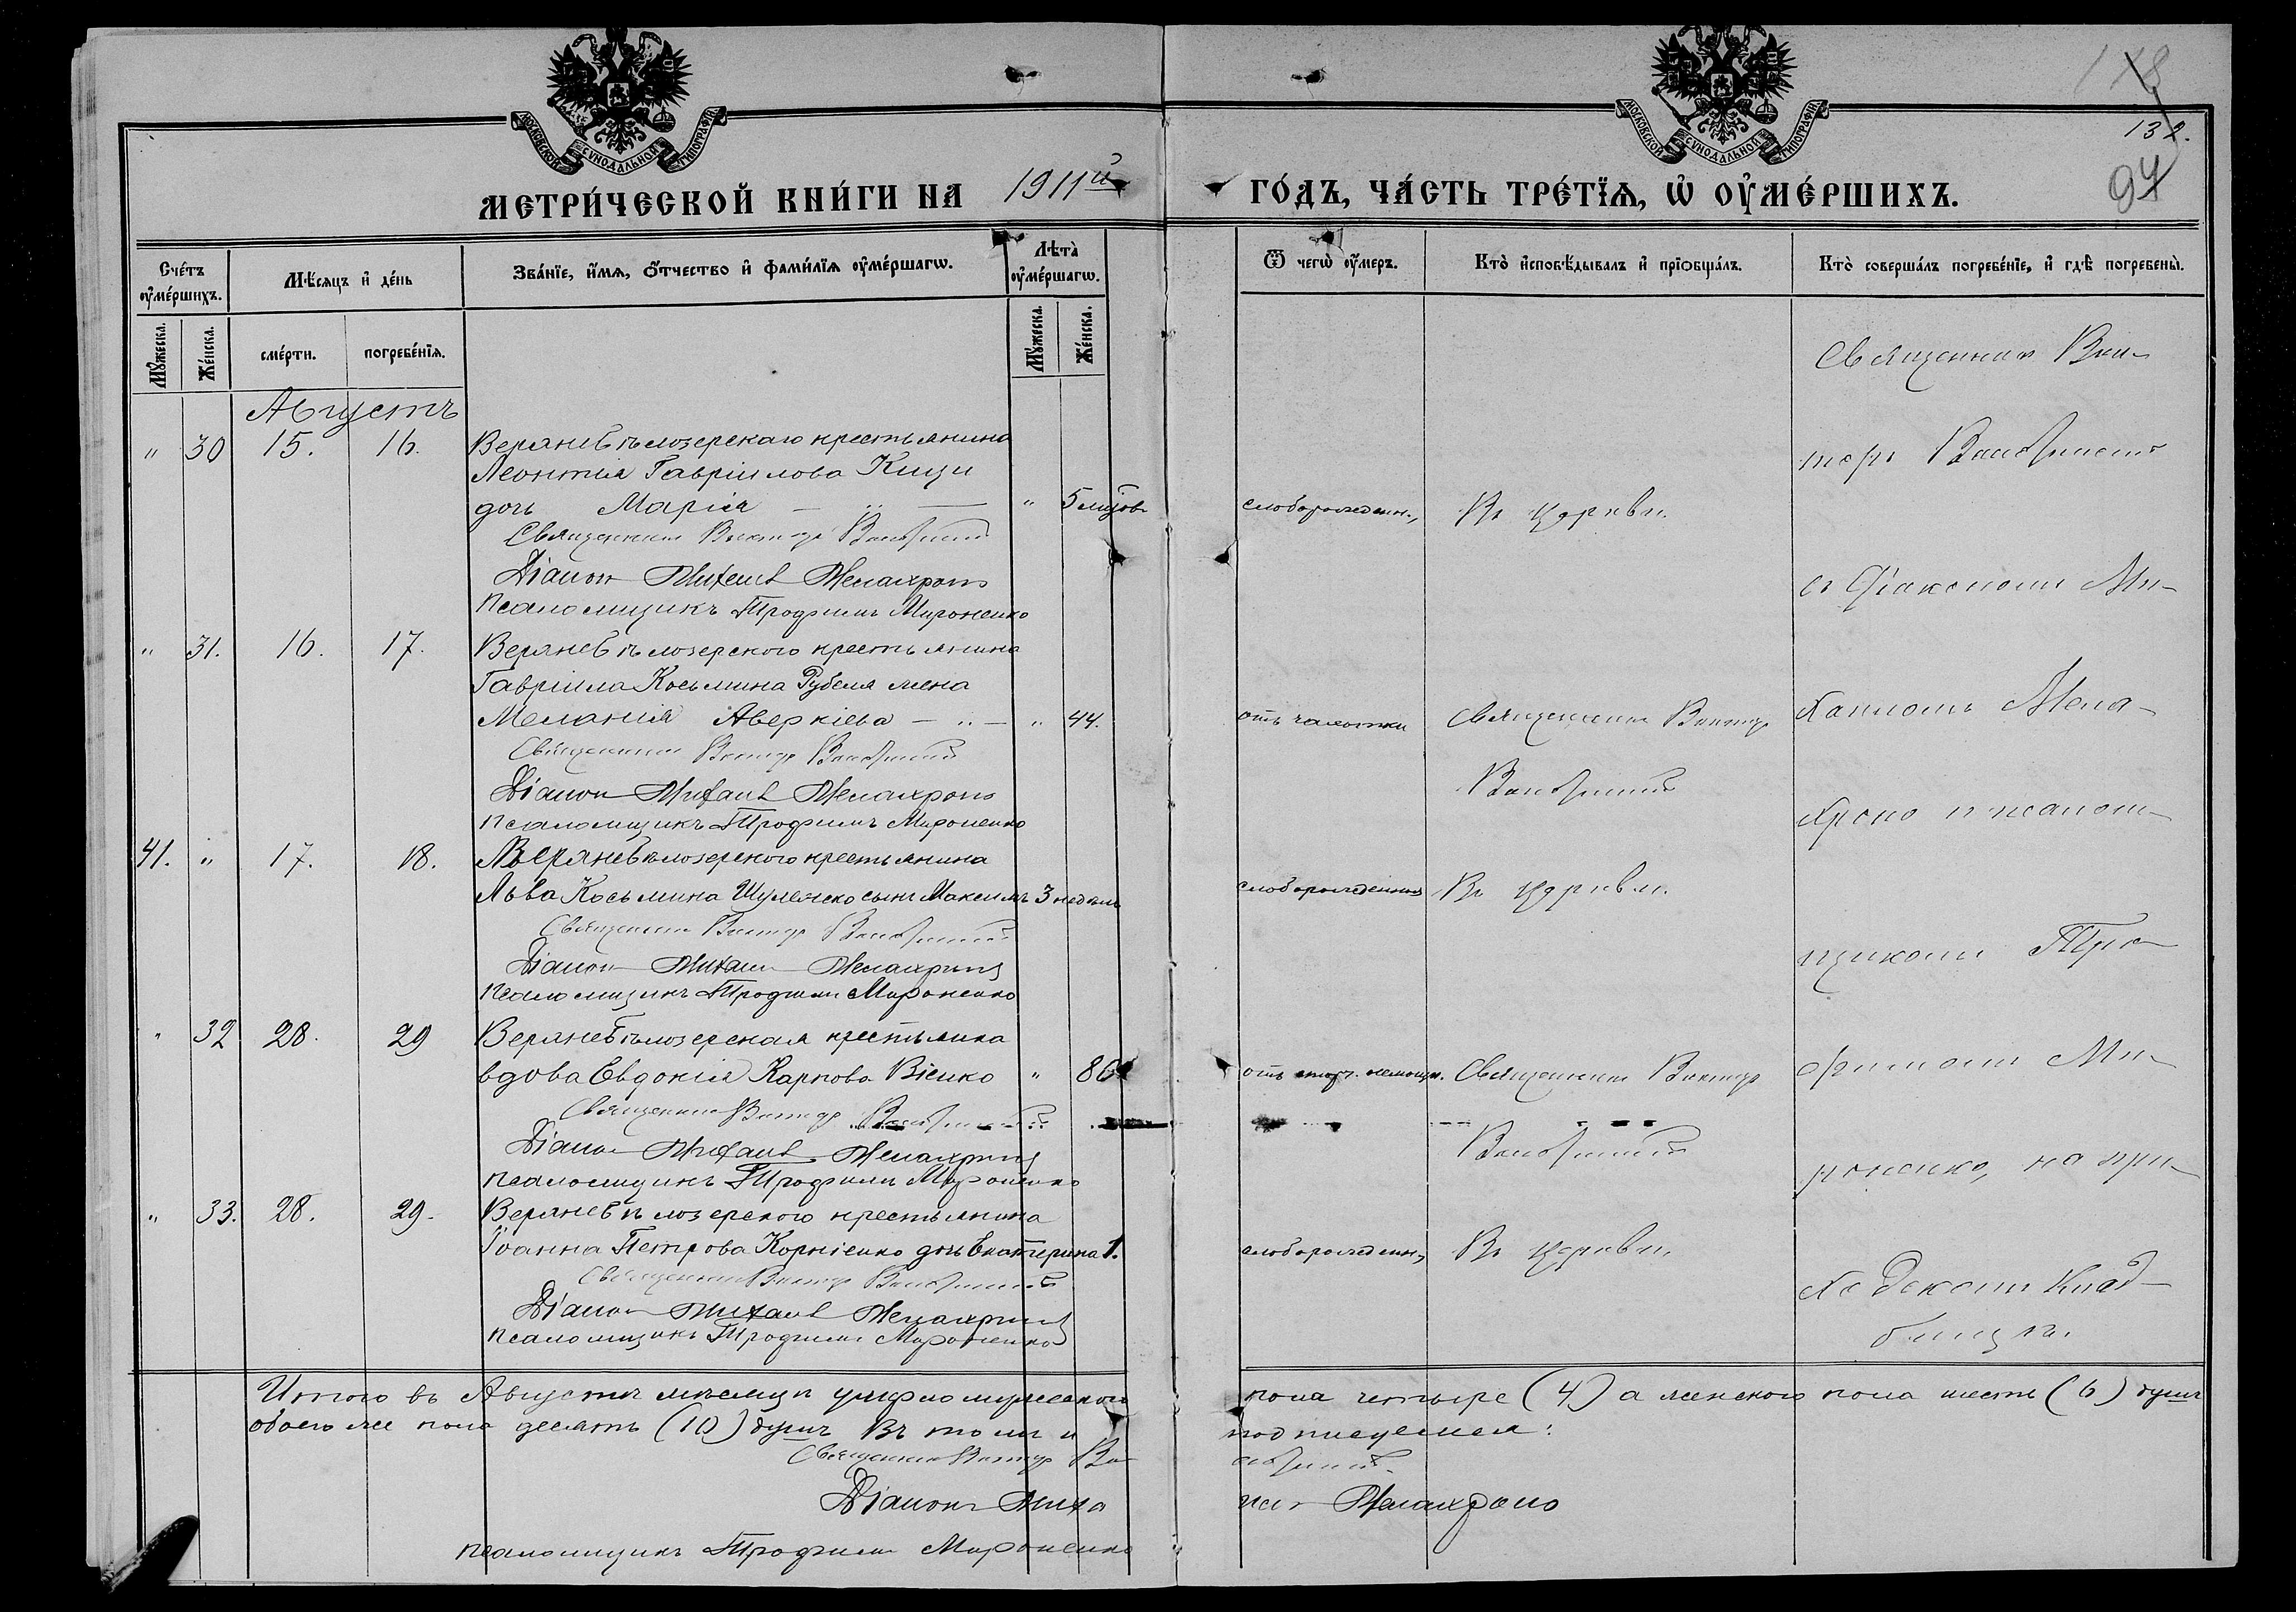 МОСКОВСКОЙ СУНОДАЛЬНОЙ ТИПОГРАФІИ
МЕТРИ́ЧЕСКОЙ КНИ́ГИ НА 1911й
Сче́тъ ᲂу҆ме́ршихъ.
Мѣ́сяцъ и҆ де́нь
Зва́нїе, и҆́мѧ, ѻ҆́тчество и҆ фами́лїѧ ᲂу҆ме́ршагѡ.
Лѣта̀ ᲂу҆ме́ршагѡ.
Мꙋ́жеска.
Же́нска.
сме́рти.
погребе́нїѧ.
Мꙋ́жеска.
Же́нска.
Августъ
" 30 15. 16. Верхнебѣлозерскаго крестьянина
Леонтія Гавріилова Кищи
дочь Марія — " — " 5 мѣсяц.
Священникъ Викторъ
Діаконъ Михаилъ
Псаломщикъ Трофимъ Мироненко
" 31. 16. 17. Верхнебѣлозерского крестьянина
Гавріила Косьмина Рубеля жена
Меланія Аверкіева — " — " 44.
Священникъ Викторъ
Діаконъ Михаилъ
Псаломщикъ Трофимъ Мироненко
41. " 17. 18. Верхнебѣлозерского крестьянина
Льва Косьмина Шуляенко сынъ Максимъ 3 недѣли
Священникъ Викторъ
Діаконъ Михаилъ
Псаломщикъ Трофимъ Мироненко
" 32 28. 29 Верхнебѣлозерская крестьянка
вдова Евдокія Карпова Віенко " 80
Священникъ Викторъ
Діаконъ Михаилъ
Псаломщикъ Трофимъ Мироненко
" 33. 28. 29. Верхнебѣлозерского крестьянина
Іоанна Петрова Корніенко дочь Екатерина 1.
Священникъ Викторъ
Діаконъ Михаилъ
Псаломщикъ Трофимъ Мироненко
Итого въ Августѣ мѣсяцѣ умерло мужескаго
обоего же пола десять (10) душъ Въ томъ и
Священникъ Викторъ
Діаконъ Миха
Псаломщикъ Трофимъ Мироненко
МОСКОВСКОЙ СУНОДАЛЬНОЙ ТИПОГРАФІИ
132.
94
ГО́ДЪ, ЧА́СТЬ ТРЕ́ТЇѦ, Ѡ҆ ОУ҆МЕ́РШИХЪ.
Ѿ чегѡ̀ ᲂу҆́меръ.
Кто̀ и҆сповѣ́дывалъ и҆ прїѡбща́лъ.
Кто̀ соверша́лъ погребе́нїе, и҆ гдѣ̀ погребены̀.
Священникъ Вик-
торъ
слаборожден., Въ церкви.
съ Діакономъ Ми-
отъ чахотки Священникъ Викторъ
хаиломъ
и псалом-
слаборожденія Въ церкви.
щикомъ Тро-
отъ старч. немощи. Священникъ Викторъ
фимомъ Ми-
роненко, на при-
слаборожден., Въ церкви
ходскомъ клад-
бищѣ.
пола четыре (4) а женского пола шесть (6) душъ
подписуемся:
илъ